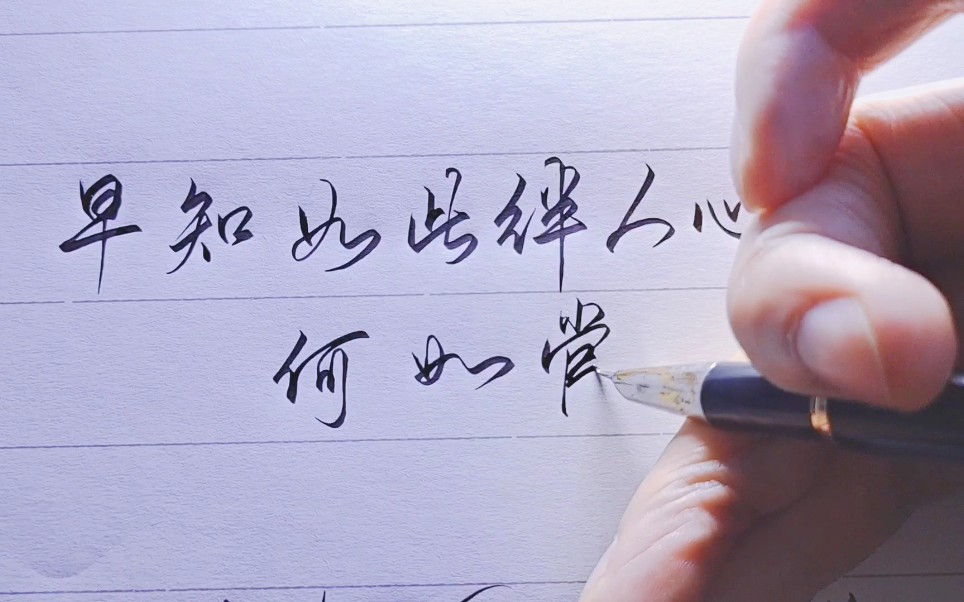 早知如此绊人心
何如當